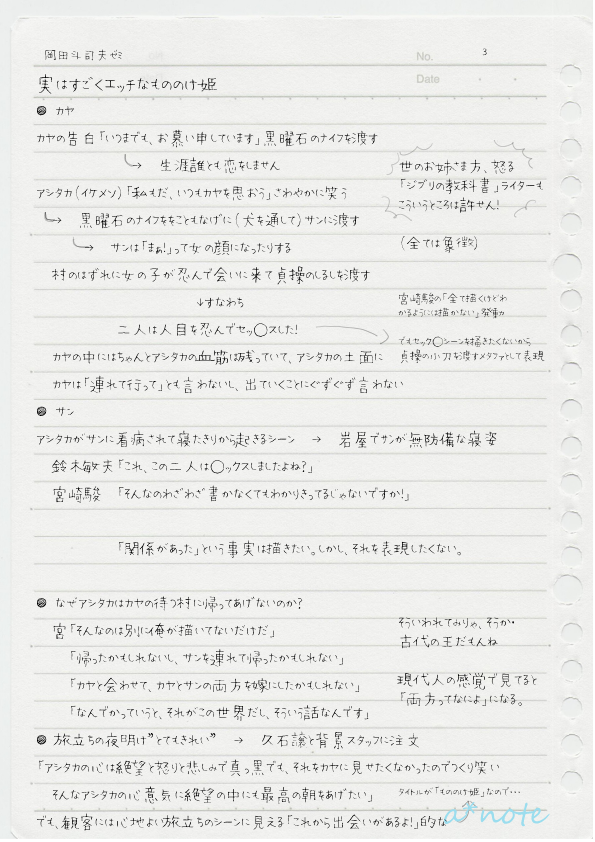 岡田斗司夫ゼミ
No. 3
Date
実はすごくエッチなもののけ姫
カヤ
カヤの告白「いつまでも、お慕い申しています」黒曜石のナイフを渡す
生涯誰とも恋をしません
世のお姉さま方、怒る
「ジブリの教科書」ライターも
こういうところは許せん!
アシタカ(イケメン)「私もだ、いつもカヤを思おう」さわやかに笑う
黒曜石のナイフををこともなげに(犬を通して)サンに渡す
サンは「まぁ!」って女の顔になったりする
(全ては象徴)
村のはずれに女の子が忍んで会いに来て貞操のしるしを渡す
↓すなわち
宮崎駿の「全て描くけどわ
かるようには描かない」発動
二人は人目を忍んでセッ◯スした!
でもセック◯シーンを描きたくないから
貞操の小刀を渡すメタファとして表現
カヤの中にはちゃんとアシタカの血筋は残っていて、アシタカの土面に
カヤは「連れて行って」とも言わないし、出ていくことにぐずぐず言わない
サン
アシタカがサンに看病されて寝たきりから起きるシーン → 岩屋でサンが無防備な寝姿
鈴木敏夫「これ、この二人は◯ックスしましたよね?」
宮崎駿 「そんなのわざわざ書かなくてもわかりきってるじゃないですか!」
「関係があった」という事実は描きたい。しかし、それを表現したくない。
なぜアシタカはカヤの待つ村に帰ってあげないのか?
宮「そんなのは別に俺が描いてないだけだ」
そういわれてみりゃ、そうか・
古代の王だもんね
「帰ったかもしれないし、サンを連れて帰ったかもしれない」
「カヤと会わせて、カヤとサンの両方を嫁にしたかもしれない」
現代人の感覚で見てると
「両方ってなによ」になる。
「なんでかっていうと、それがこの世界だし、そういう話なんです」
旅立ちの夜明け"とてもきれい" → 久石譲と背景スタッフに注文
「アシタカの心は絶望と怒りと悲しみで真っ黒でも、それをカヤに見せたくなかったのでつくり笑い
そんなアシタカの心意気に絶望の中にも最高の朝をあげたい」
タイトルが「もののけ姫」なので・・・
でも、観客には心地よい旅立ちのシーンに見える「これから出会いがあるよ!」的な
a note